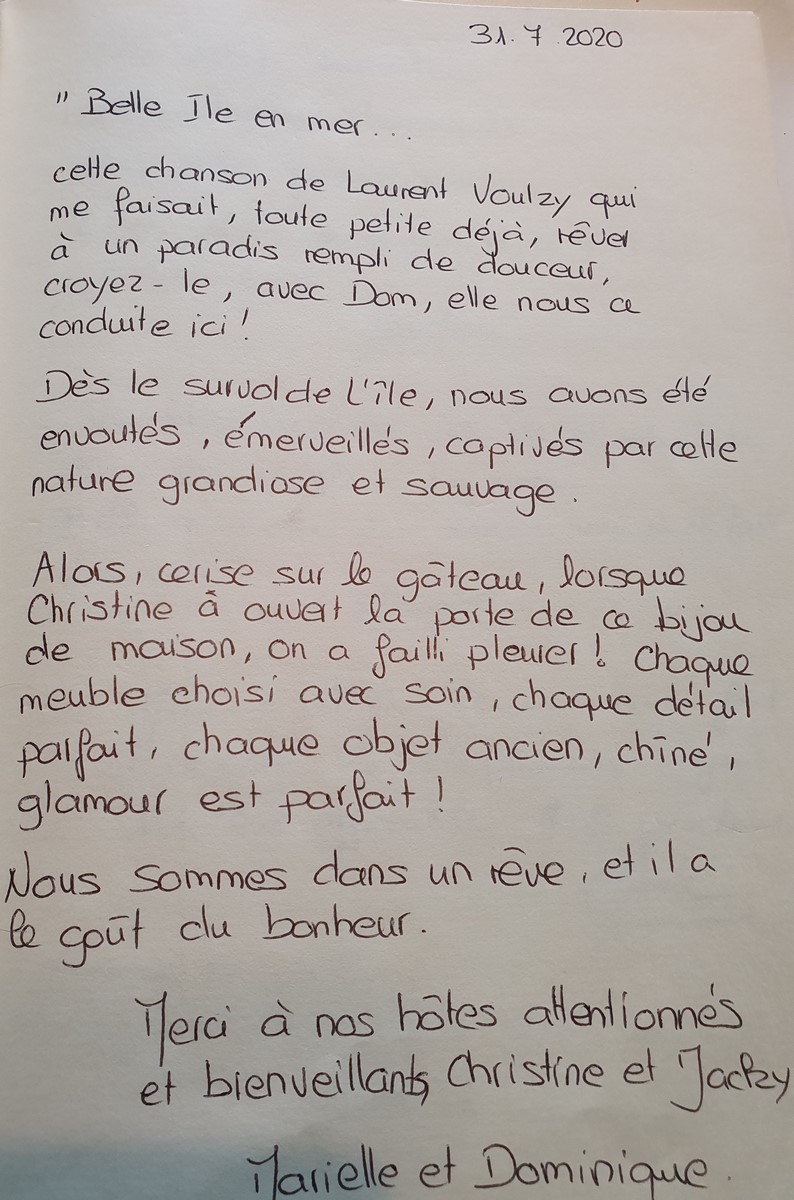 31.7.2020
" Belle Ile en mer...
cette chanson de Laurent Voulzy qui
me faisait, toute petite déjà, rêver
à un paradis rempli de douceur,
croyez-le, avec Dom, elle nous a
conduite ici !
Dès le survol de l'île, nous avons été
envoutés, émerveillés, captivés par cette
nature grandiose et sauvage.
Alors, cerise sur le gâteau, lorsque
Christine à ouvert la porte de ce bijou
de maison, on a failli pleurer ! Chaque
meuble choisi avec soin, chaque détail
parfait, chaque objet ancien, chîné,
glamour est parfait !
Nous sommes dans un rêve, et il a
le goût du bonheur.
Merci à nos hôtes attentionnés
et bienveillants, Christine et Jacky
Marielle et Dominique.